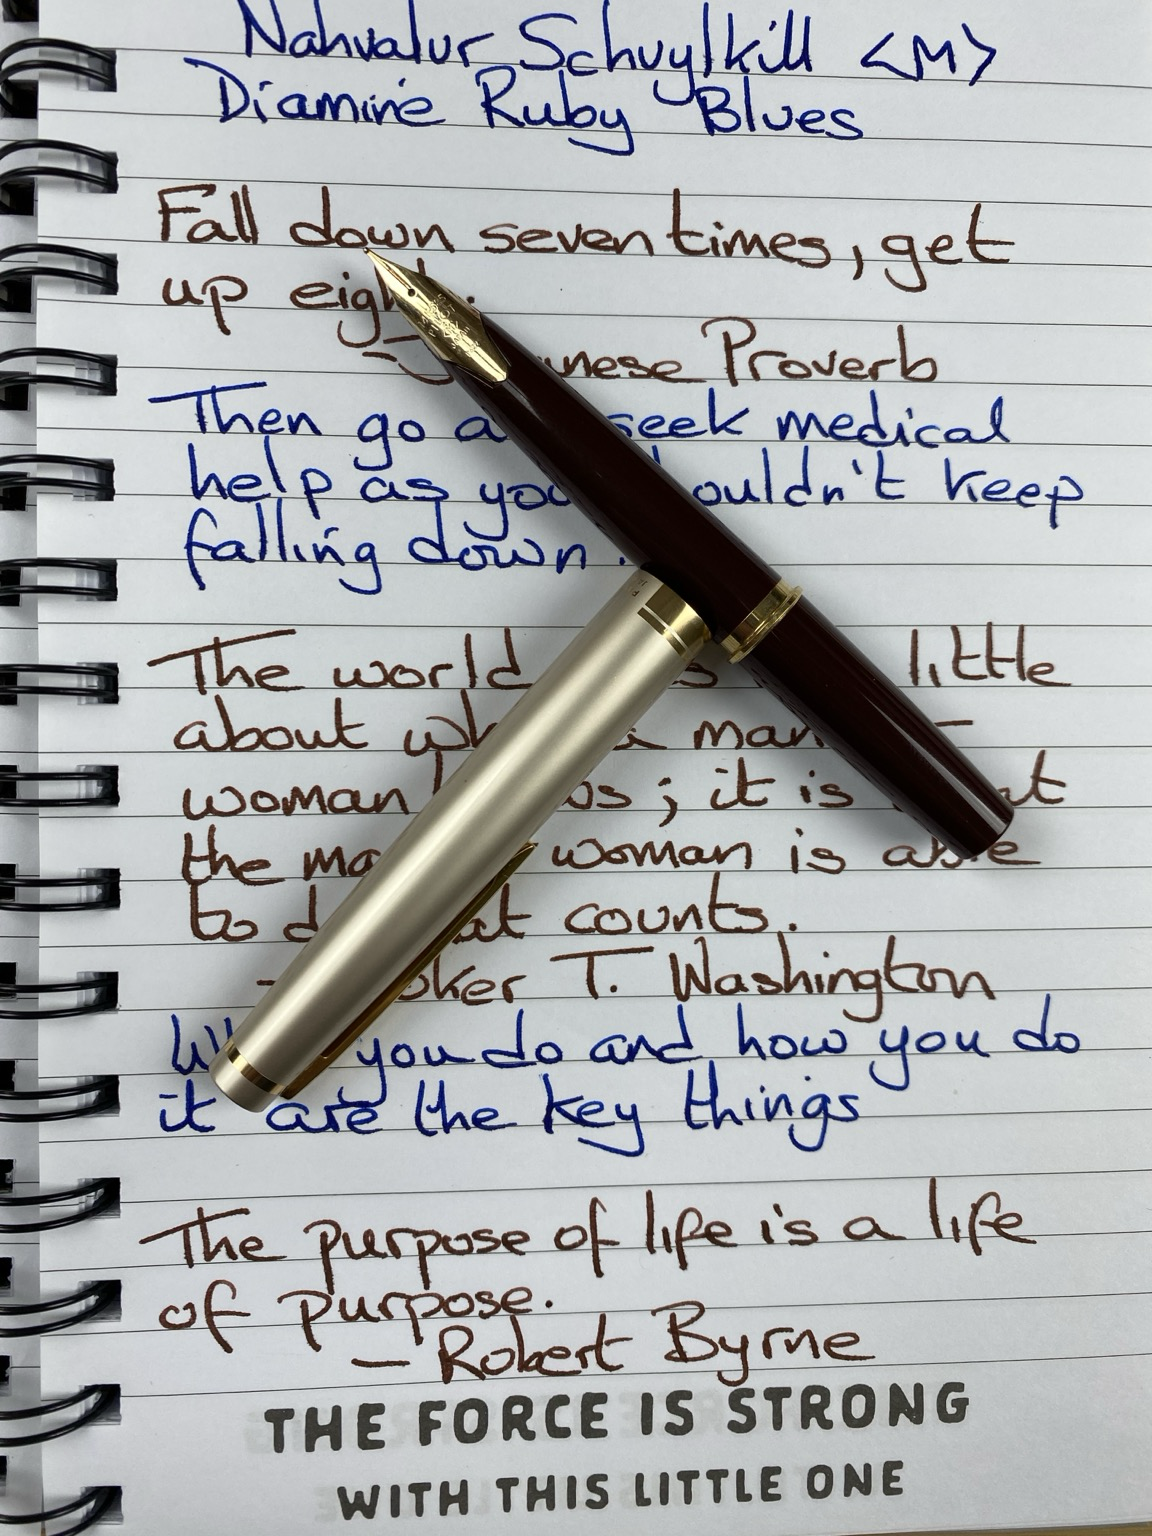 Nahvalur Schuylkill <M>
Diamine Ruby Blues
Fall down seven times, get
up eight.
- Japanese Proverb
Then go a seek medical
help as you shouldn't keep
falling down.
The world little
about what a man
woman ; it is
the man woman is able
to do that counts.
- Booker T. Washington
What you do and how you do
it are the key things
The purpose of life is a life
of purpose.
- Robert Byrne
THE FORCE IS STRONG
WITH THIS LITTLE ONE